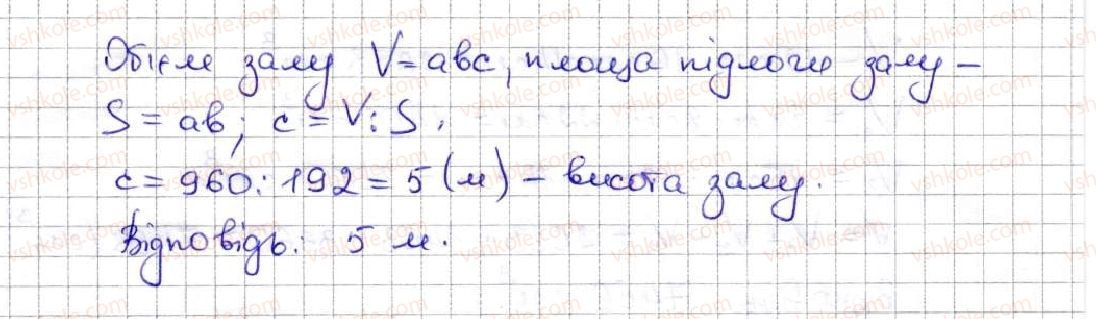 Об'єм залу V = abc, площа підлоги залу –
S = ab; c = V : S.
c = 960 : 192 = 5 (м) – висота залу.
Відповідь: 5 м.